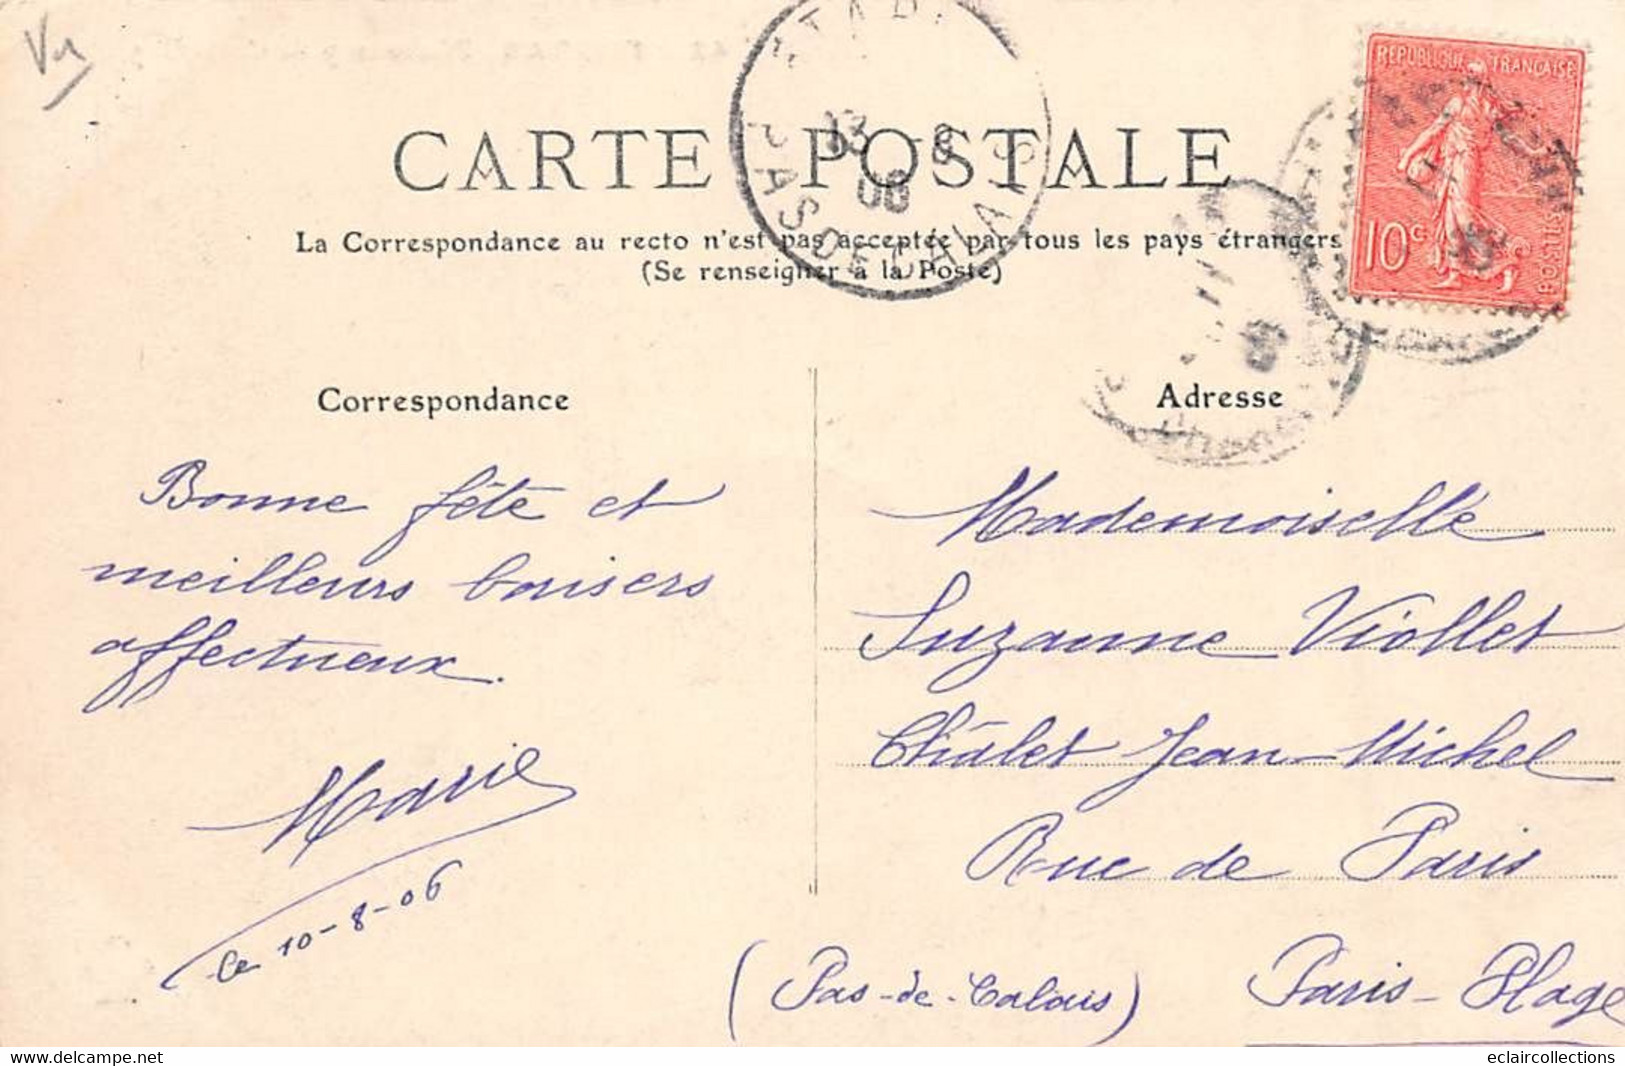 CARTE POSTALE
La Correspondance au recto n'est pas acceptée par tous les pays étrangers
(Se renseigner à la Poste)
RÉPUBLIQUE FRANÇAISE
10c
POSTES
13 8
06
PAS DE CALAIS
Correspondance
Bonne fête et
meilleurs baisers
affectueux.
Marie
le 10-8-06
Adresse
Mademoiselle
Suzanne Viollet
Châlet Jean-Michel
Rue de Paris
Paris-Plage
(Pas-de-Calais)
eclaircollections